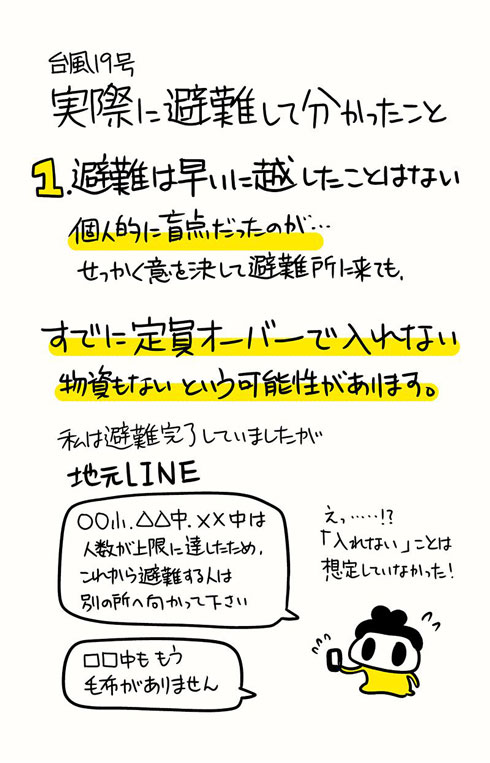 台風19号
実際に避難して分かったこと
1.避難は早いに越したことはない
個人的に盲点だったのが…
せっかく意を決して避難所に来ても、
すでに定員オーバーで入れない
物資もないという可能性があります。
私は避難完了していましたが
地元LINE
○○小、△△中、××中は
人数が上限に達したため、
これから避難する人は
別の所へ向かって下さい
えっ……!?
「入れない」ことは
想定していなかった!
□□中ももう
毛布がありません